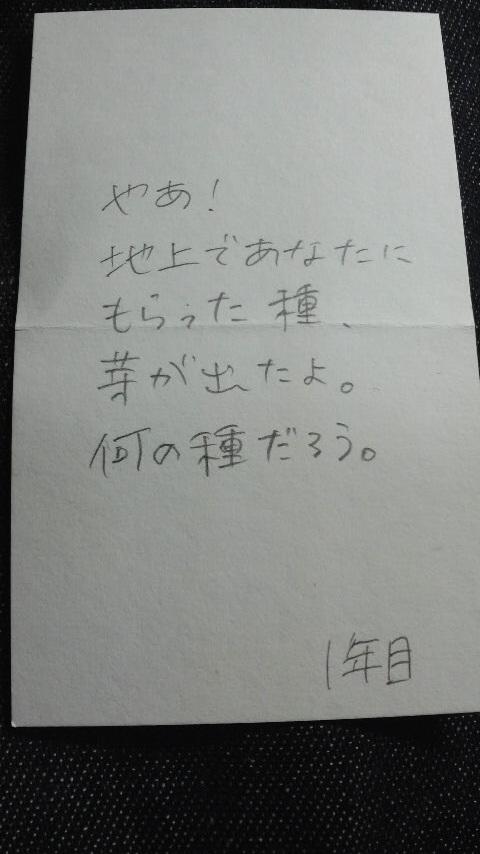 やあ!
地上であなたに
もらった種、
芽が出たよ。
何の種だろう。
1年目